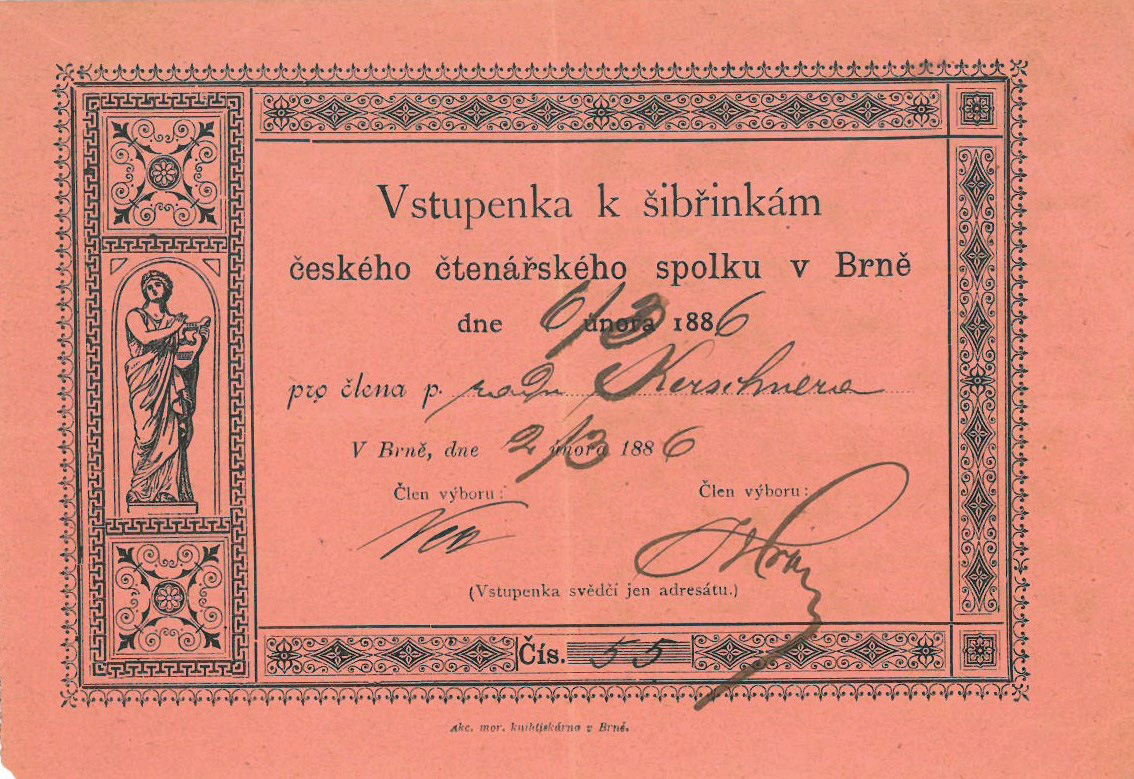 Vstupenka k šibřinkám
českého čtenářského spolku v Brně
dne 6/3 února 1886
pro člena p. radu Kerschnera
V Brně, dne 2/3 února 1886
Člen výboru: Člen výboru:
(Vstupenka svědčí jen adresátu.)
Čís. 55
Akc. mor. knihtiskárna v Brně.